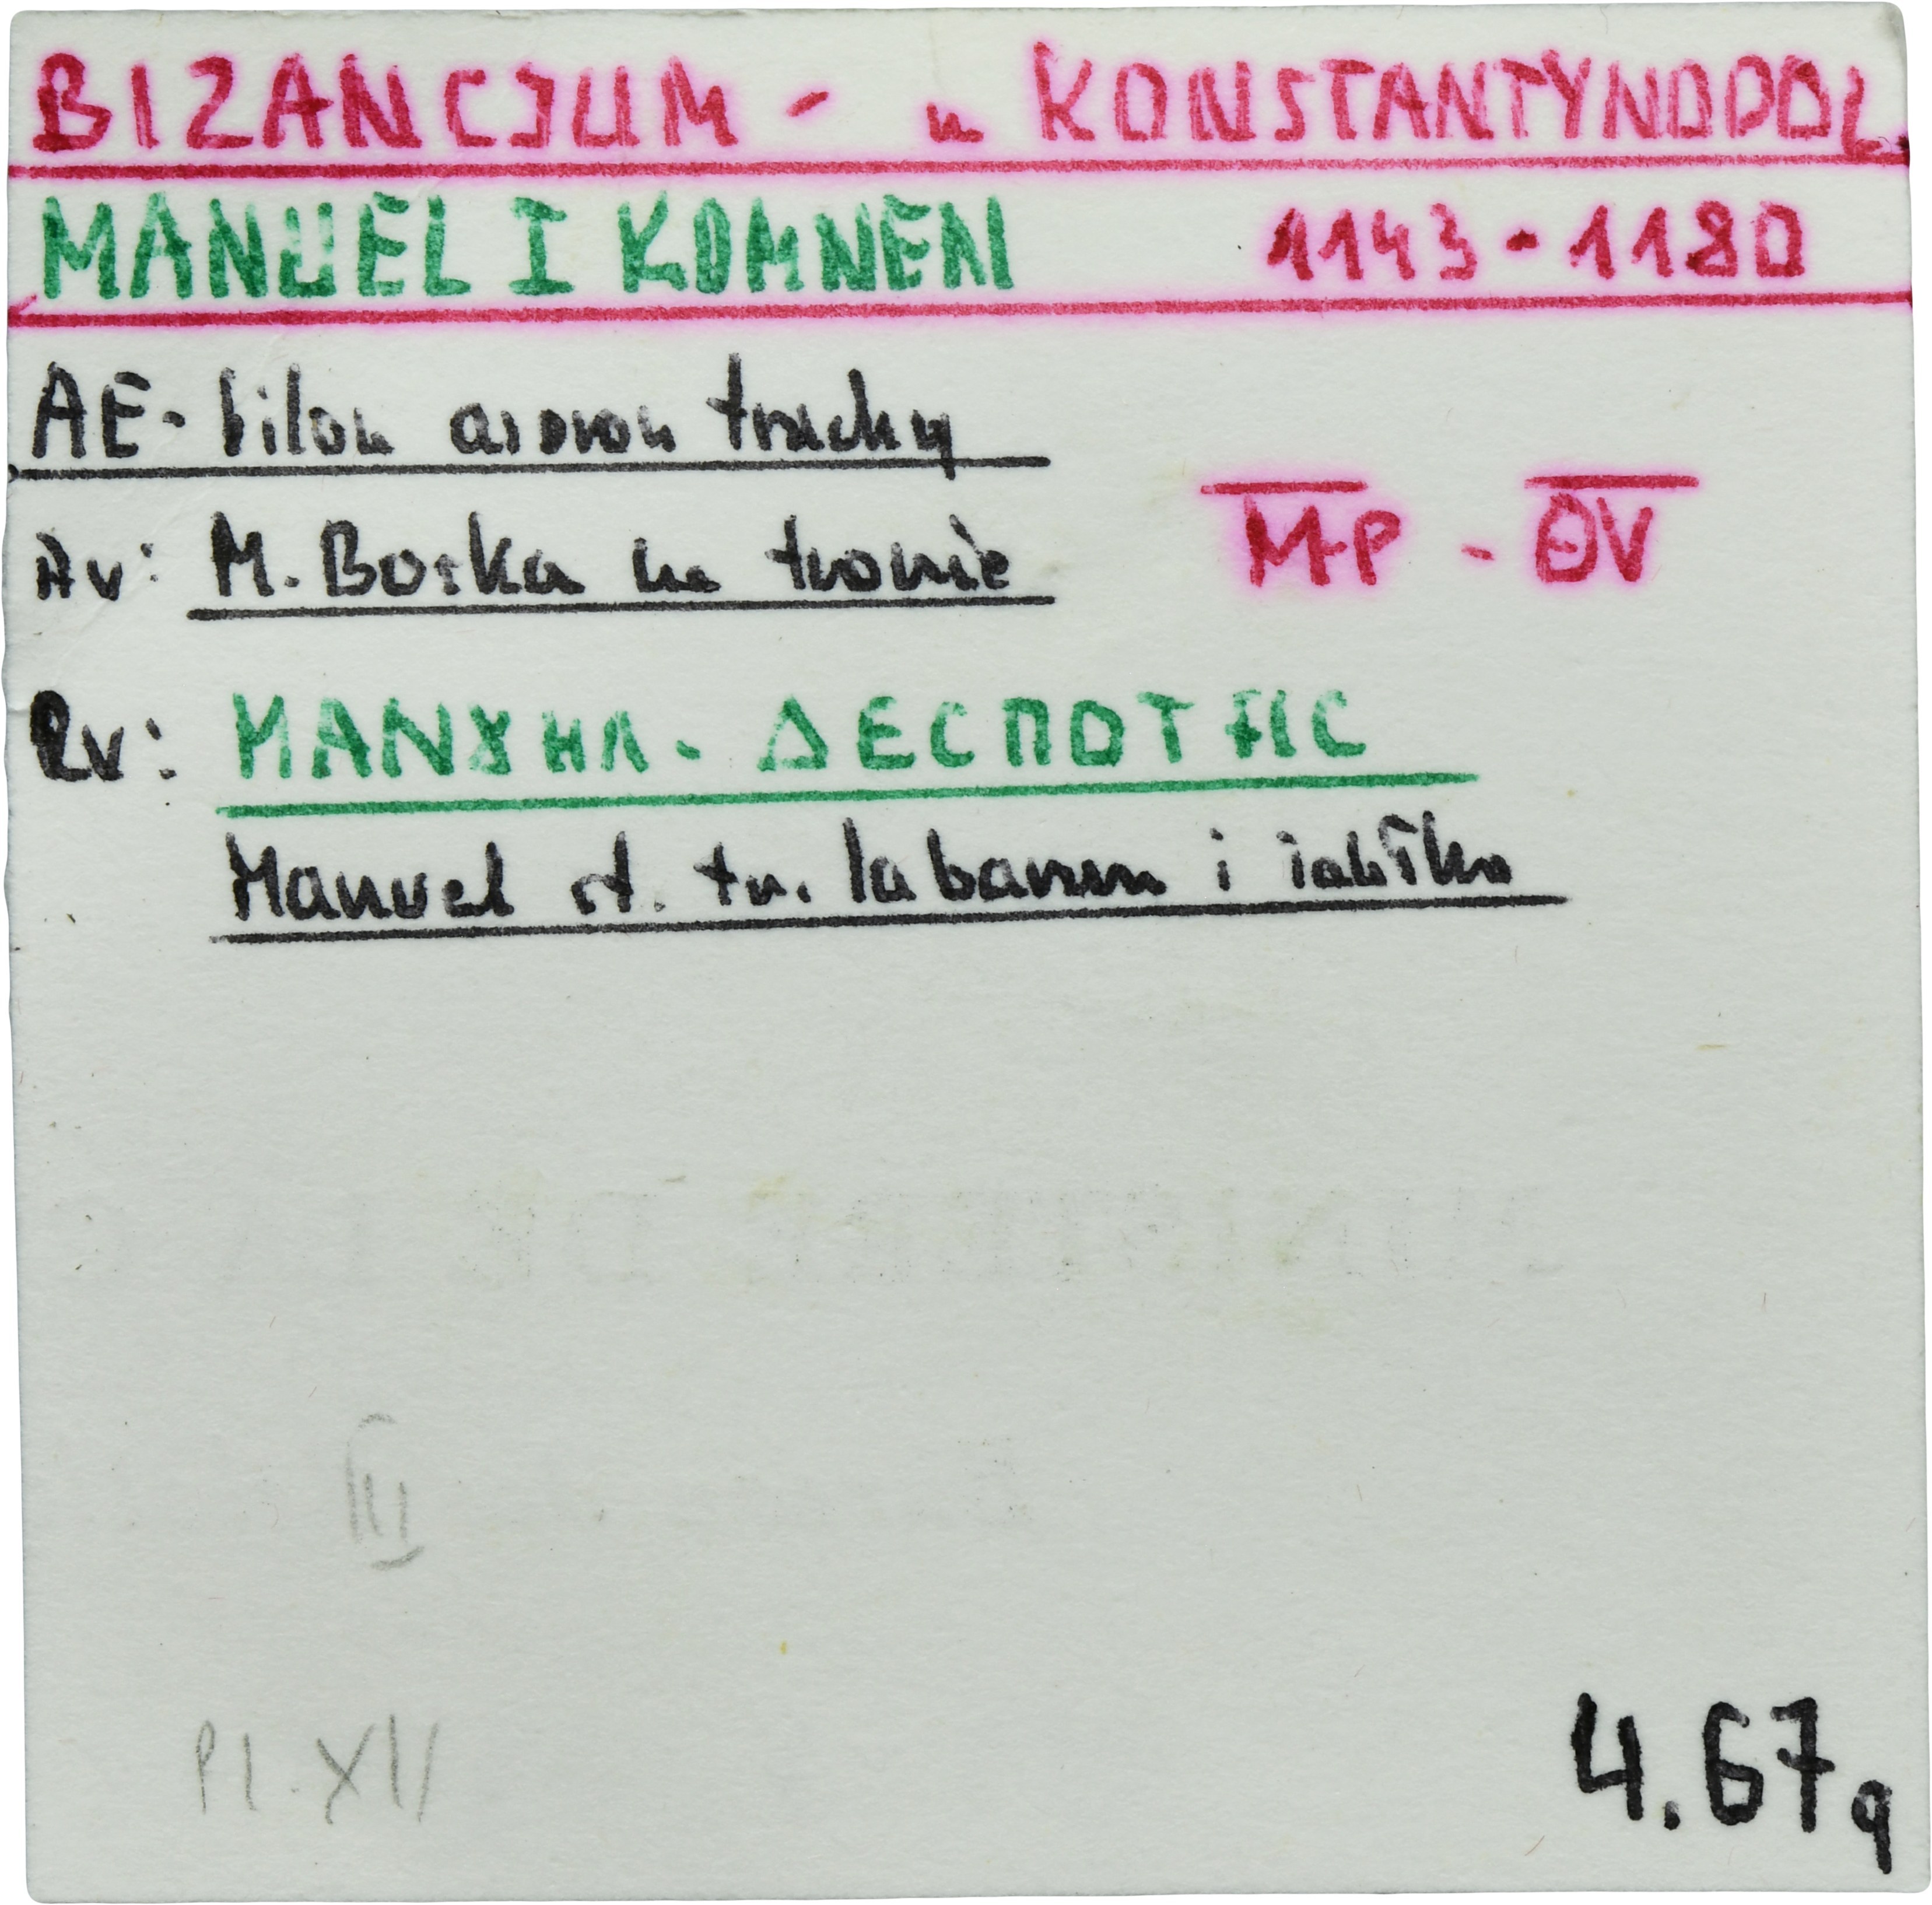 BIZANCJUM - m KONSTANTYNOPOL
MANUEL I KOMNEN 1143-1180
AE- bilon aspron trachy
Av: M. Boska na tronie M̅P̅ - Θ̅V̅
Rv: MANȣHΛ - ΔΕCΠΟΤHC
Manuel st. tr. labarum i jabłko
III
Pl. XII
4.67g